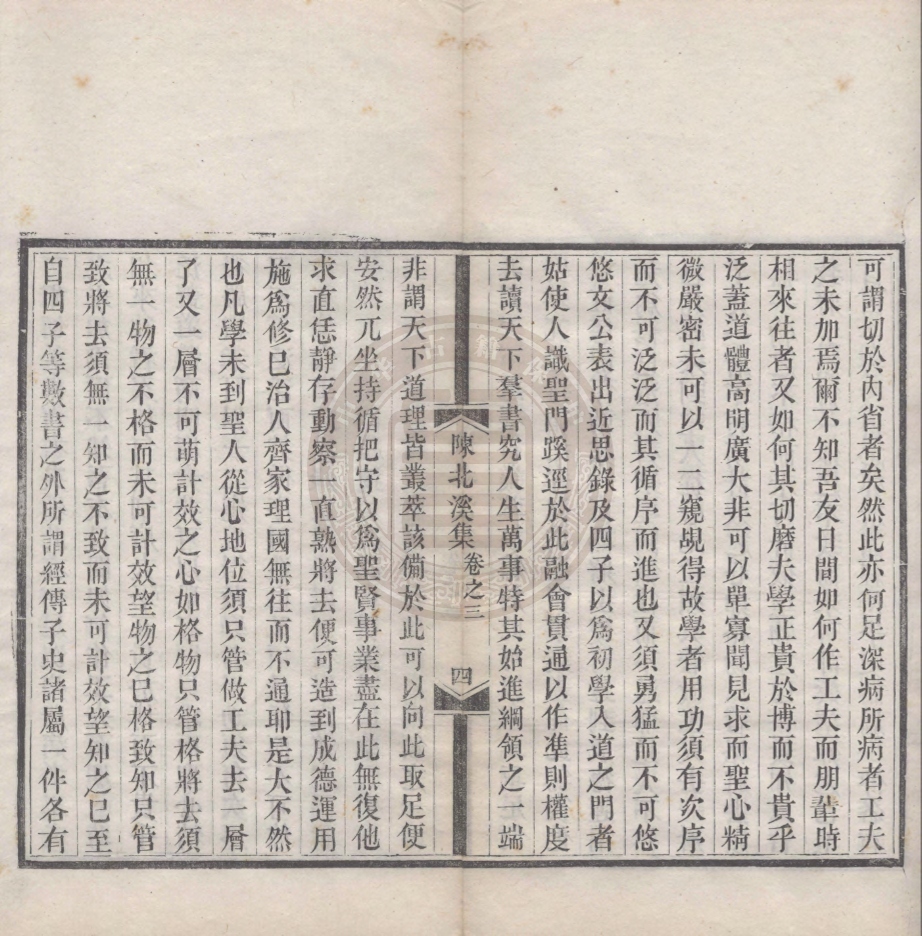 可謂切於內省者矣然此亦何足深病所病者工夫
之未加焉爾不知吾友日間如何作工夫而朋輩時
相來往者又如何其切磨夫學正貴於博而不貴乎
泛蓋道體高明廣大非可以單寡聞見求而聖心精
微嚴密未可以一二窺覘得故學者用功須有次序
而不可泛泛而其循序而進也又須勇猛而不可悠
悠文公表出近思錄及四子以爲初學入道之門者
姑使人識聖門蹊逕於此融會貫通以作準則權度
去讀天下羣書究人生萬事特其始進綱領之一端
陳北溪集 卷之三 四
非謂天下道理皆叢萃該備於此可以向此取足便
安然兀坐持循把守以爲聖賢事業盡在此無復他
求直恁靜存動察一直熟將去便可造到成德運用
施爲修已治人齊家理國無往而不通耶是大不然
也凡學未到聖人從心地位須只管做工夫去一層
了又一層不可萌計效之心如格物只管格將去須
無一物之不格而未可計效望物之已格致知只管
致將去須無一知之不致而未可計效望知之已至
自四子等數書之外所謂經傳子史諸屬一件各有